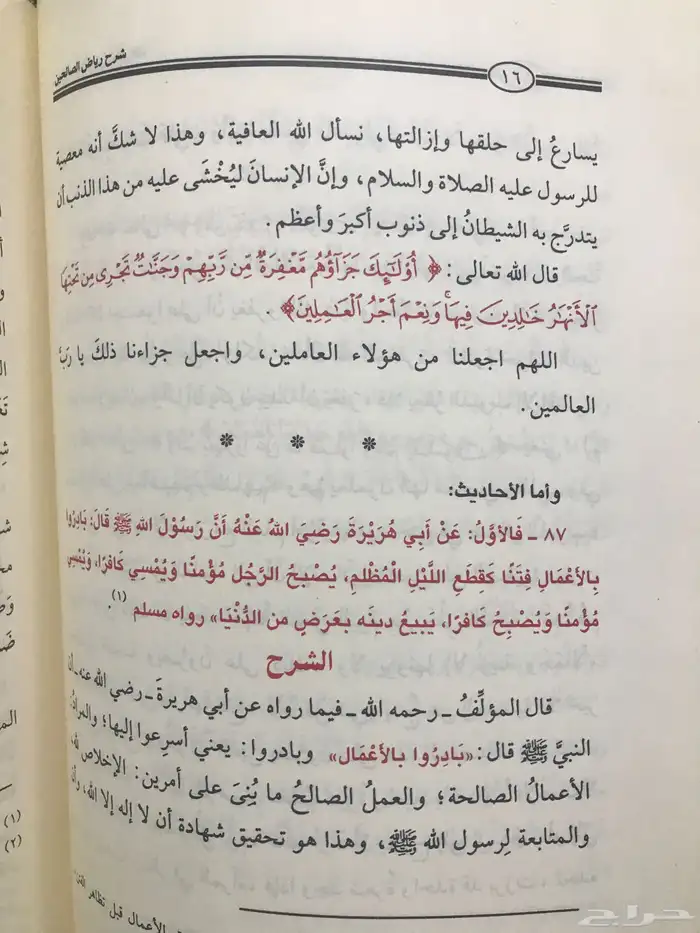 شرح رياض الصالحين
١٦
يسارعُ إلى حلقها وإزالتها، نسأل الله العافية، وهذا لا شكَّ أنه معصية
للرسول عليه الصلاة والسلام، وإنَّ الإنسانَ ليُخْشَى عليه من هذا الذنب أن
يتدرَّج به الشيطانُ إلى ذنوب أكبرَ وأعظم.
قال الله تعالى: ﴿ أُوْلَٰٓئِكَ جَزَآؤُهُم مَّغْفِرَةٌ مِّن رَّبِّهِمْ وَجَنَّٰتٌ تَجْرِى مِن تَحْتِهَا
ٱلْأَنْهَٰرُ خَٰلِدِينَ فِيهَا ۚ وَنِعْمَ أَجْرُ ٱلْعَٰمِلِينَ﴾.
اللهم اجعلنا من هؤلاء العاملين، واجعل جزاءنا ذلكَ يا ربَّ
العالمين.
* * *
وأما الأحاديث:
٨٧ ـ فَالأوَّلُ: عَنْ أبي هُرَيْرَةَ رَضِيَ اللهُ عَنْهُ أنَّ رَسُولَ اللهِ ﷺ قَالَ: بَادِرُوا
بِالأعْمَالِ فِتَنًا كَقِطَعِ اللَّيْلِ الْمُظْلِمِ، يُصْبِحُ الرَّجُل مُؤْمنًا وَيُمْسِي كَافرًا، وَيُمْسِي
مُؤْمنًا وَيُصْبِحُ كَافرًا، يَبيعُ دينَه بعَرَضٍ من الدُّنْيَا» رواه مسلم (١).
الشرح
قال المؤلِّفُ ـ رحمه الله ـ فيما رواه عن أبي هريرةَ ـ رضي الله عنه ـ أن
النبيَّ ﷺ قال: «بَادِرُوا بالأعْمَال» وبادروا: يعني أسرِعوا إليها؛ والمرادُ:
الأعمالُ الصالحة؛ والعملُ الصالحُ ما بُنِيَ على أمرين: الإخلاص لله،
والمتابعة لِرسول الله ﷺ، وهذا هو تحقيق شهادة أن لا إله إلا الله، وأن
الأعمال قبل تظاهر الفتن
(١)
(٢)
حراج